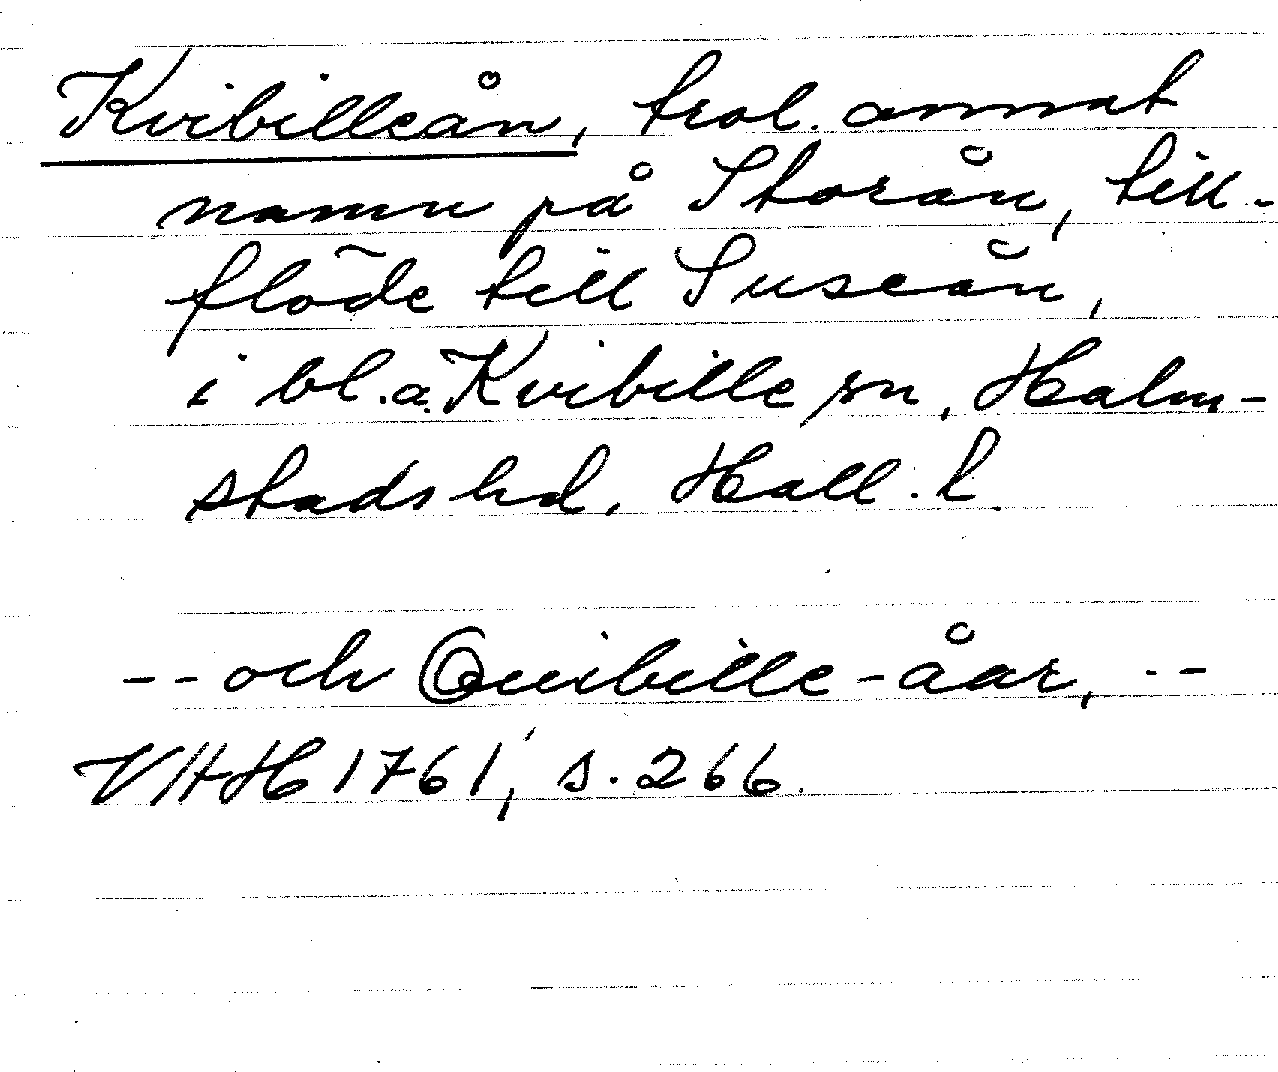 Kvibilleån, trol. annat
namn på Storån, till-
flöde till Suseån,
i bl.a. Kvibille sn, Halm-
stads hd, Hall. l.
-- och Quibille-åar, --
VHH 1761, s. 266.